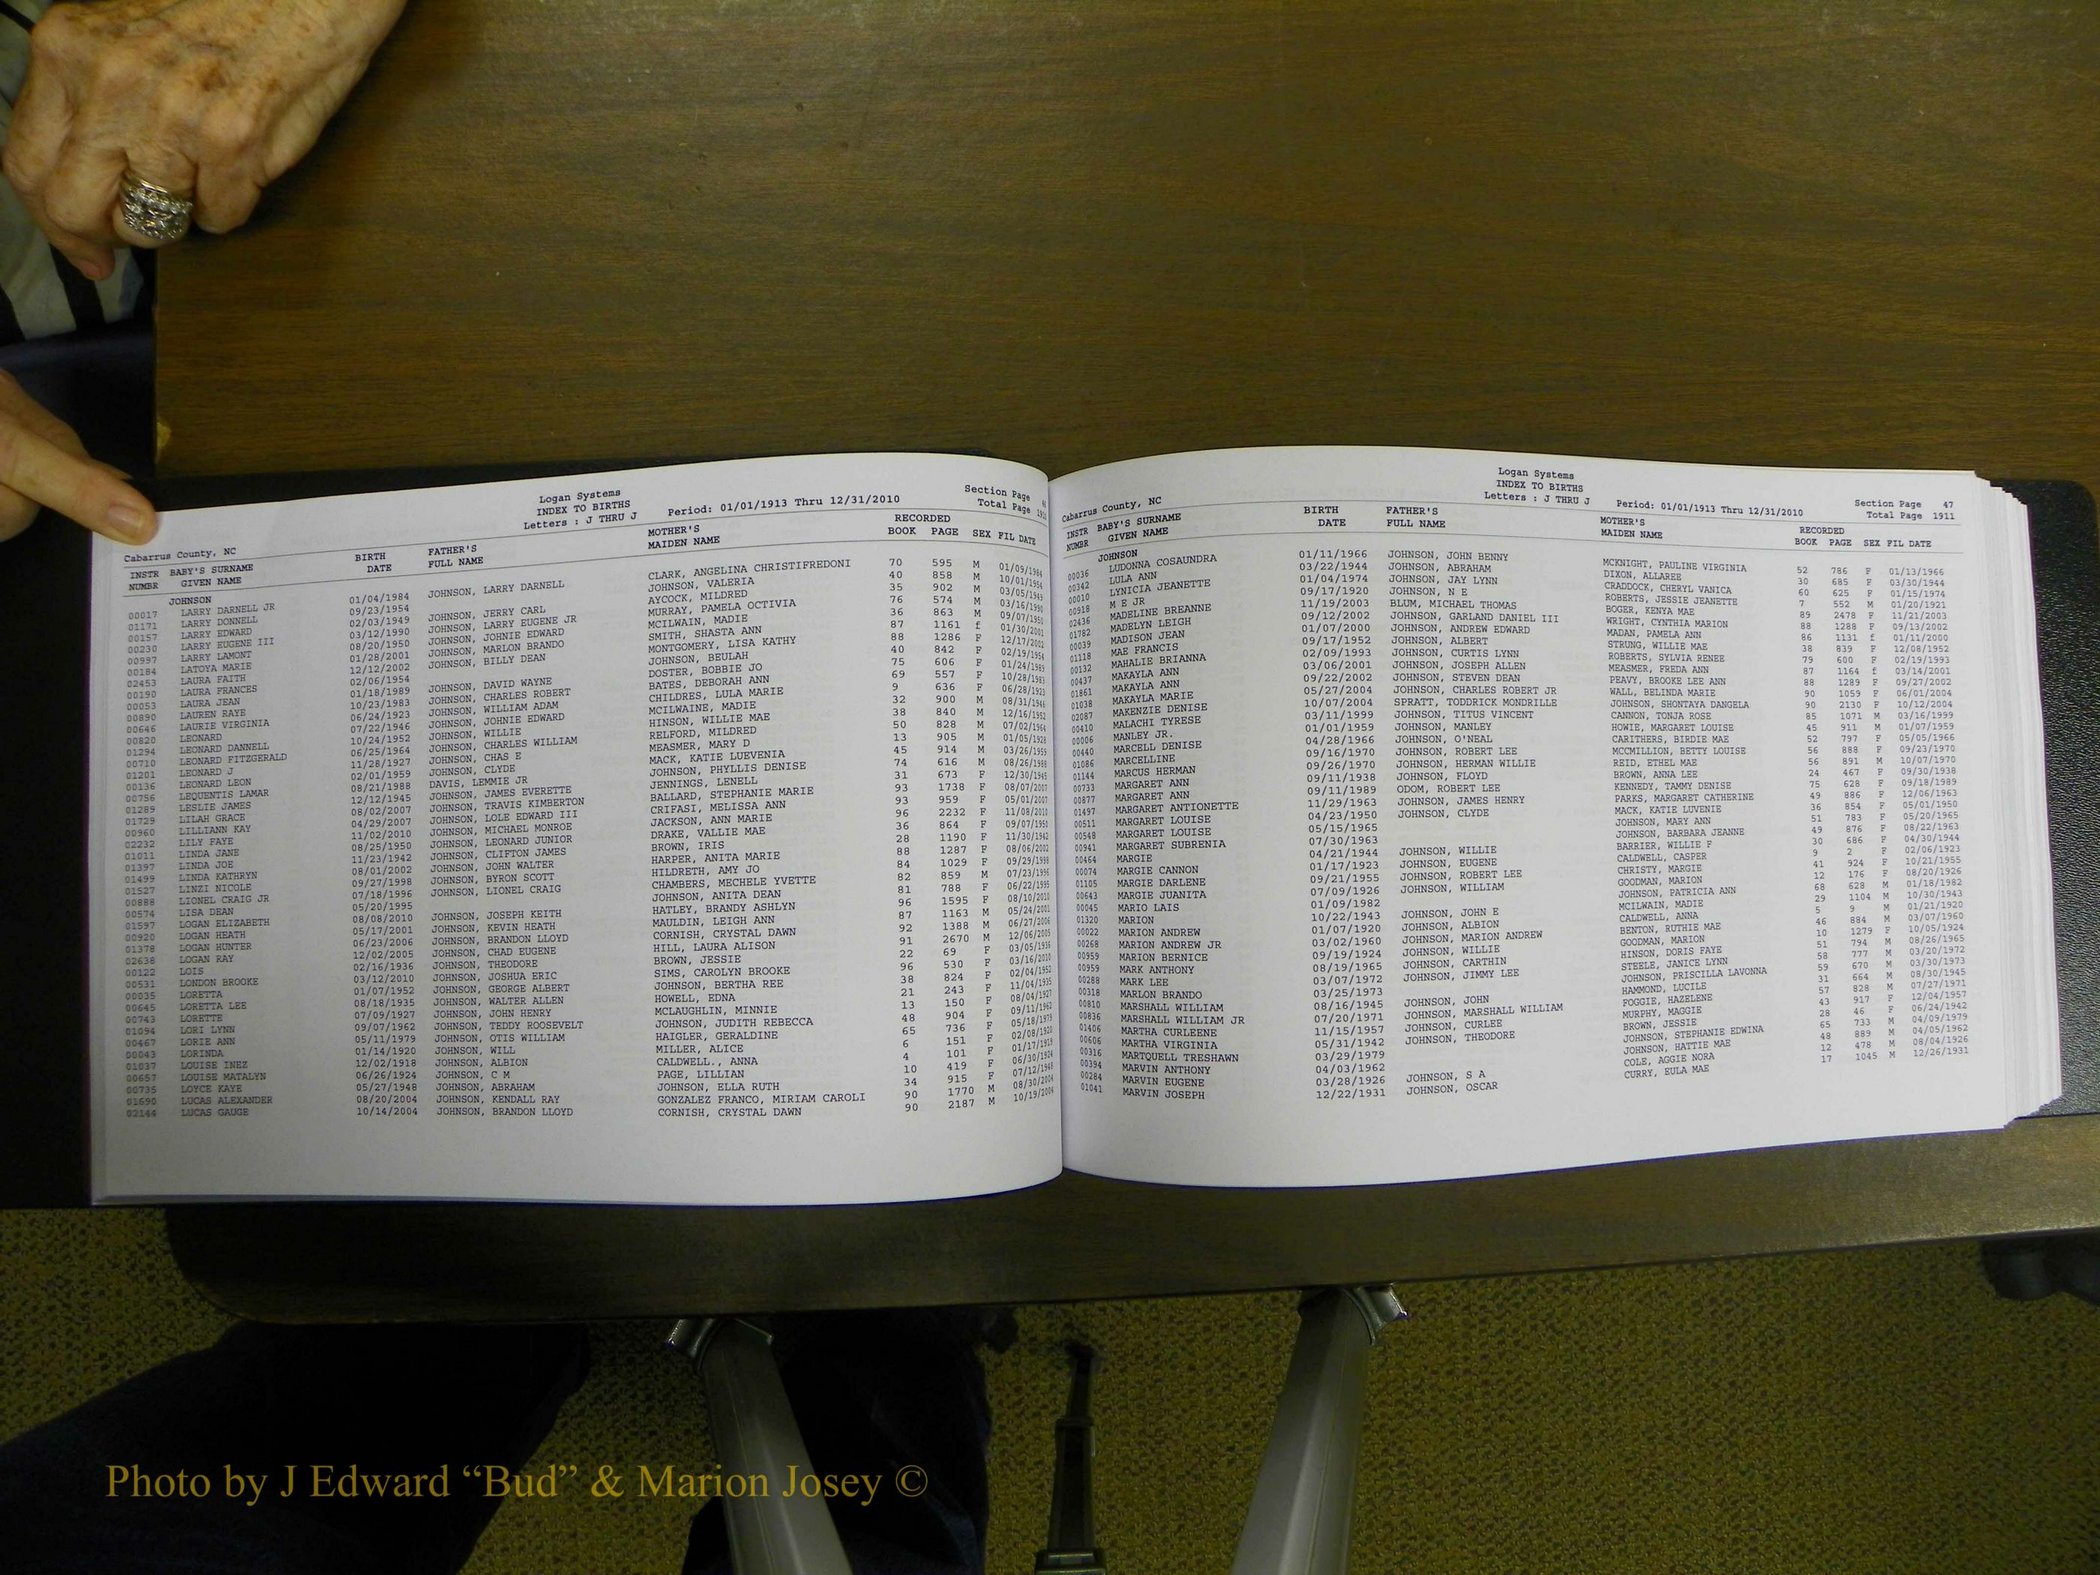 Logan Systems
INDEX TO BIRTHS
Letters : J THRU J
Period: 01/01/1913 Thru 12/31/2010
Section Page
Total Page
Cabarrus County, NC
INSTR BABY'S SURNAME BIRTH FATHER'S MOTHER'S RECORDED
NUMBR GIVEN NAME DATE FULL NAME MAIDEN NAME BOOK PAGE SEX FIL DATE
JOHNSON
00017 LARRY DARNELL JR 01/04/1984 JOHNSON, LARRY DARNELL CLARK, ANGELINA CHRISTIFREDONI 70 595 M 01/09/1984
01171 LARRY DONNELL 09/23/1954 JOHNSON, VALERIA 40 858 M 10/01/1954
00157 LARRY EDWARD 02/03/1949 JOHNSON, JERRY CARL AYCOCK, MILDRED 35 902 M 03/05/1949
00230 LARRY EUGENE III 03/12/1990 JOHNSON, LARRY EUGENE JR MURRAY, PAMELA OCTIVIA 76 574 M 03/16/1990
00997 LARRY LAMONT 08/20/1950 JOHNSON, JOHNIE EDWARD MCILWAIN, MADIE 36 863 M 09/07/1950
00184 LATOYA MARIE 01/28/2001 JOHNSON, MARLON BRANDO SMITH, SHASTA ANN 87 1161 f 01/30/2001
02453 LAURA FAITH 12/12/2002 JOHNSON, BILLY DEAN MONTGOMERY, LISA KATHY 88 1286 F 12/17/2002
00190 LAURA FRANCES 02/06/1954 JOHNSON, BEULAH 40 842 F 02/19/1954
00053 LAURA JEAN 01/18/1989 JOHNSON, DAVID WAYNE DOSTER, BOBBIE JO 75 606 F 01/24/1989
00890 LAUREN RAYE 10/23/1983 JOHNSON, CHARLES ROBERT BATES, DEBORAH ANN 69 557 F 10/28/1983
00646 LAURIE VIRGINIA 06/24/1923 JOHNSON, WILLIAM ADAM CHILDRES, LULA MARIE 9 636 F 06/28/1923
00820 LEONARD 07/22/1946 JOHNSON, JOHNIE EDWARD MCILWAINE, MADIE 32 900 M 08/31/1946
01294 LEONARD DANNELL 10/24/1952 JOHNSON, WILLIE HINSON, WILLIE MAE 38 840 M 12/16/1952
00710 LEONARD FITZGERALD 06/25/1964 JOHNSON, CHARLES WILLIAM RELFORD, MILDRED 50 828 M 07/02/1964
01201 LEONARD J 11/28/1927 JOHNSON, CHAS E MEASMER, MARY D 13 905 M 01/05/1928
00136 LEONARD LEON 02/01/1959 JOHNSON, CLYDE MACK, KATIE LUEVENIA 45 914 M 03/26/1959
00756 LEQUENTIS LAMAR 08/21/1988 DAVIS, LEMMIE JR JOHNSON, PHYLLIS DENISE 74 616 M 08/26/1988
01289 LESLIE JAMES 12/12/1945 JOHNSON, JAMES EVERETTE JENNINGS, LENELL 31 673 F 12/30/1945
01729 LILAH GRACE 08/02/2007 JOHNSON, TRAVIS KIMBERTON BALLARD, STEPHANIE MARIE 93 1738 F 08/07/2007
00960 LILLIANN KAY 04/29/2007 JOHNSON, LOLE EDWARD III CRIFASI, MELISSA ANN 93 959 F 05/01/2007
02232 LILY FAYE 11/02/2010 JOHNSON, MICHAEL MONROE JACKSON, ANN MARIE 96 2232 F 11/08/2010
01011 LINDA JANE 08/25/1950 JOHNSON, LEONARD JUNIOR DRAKE, VALLIE MAE 36 864 F 09/07/1950
01397 LINDA JOE 11/23/1942 JOHNSON, CLIFTON JAMES BROWN, IRIS 28 1190 F 11/30/1942
01499 LINDA KATHRYN 08/01/2002 JOHNSON, JOHN WALTER HARPER, ANITA MARIE 88 1287 F 08/06/2002
01527 LINZI NICOLE 09/27/1998 JOHNSON, BYRON SCOTT HILDRETH, AMY JO 84 1029 F 09/29/1998
00888 LIONEL CRAIG JR 07/18/1996 JOHNSON, LIONEL CRAIG CHAMBERS, MECHELE YVETTE 82 859 M 07/23/1996
00574 LISA DEAN 05/20/1995 JOHNSON, ANITA DEAN 81 788 F 06/22/1995
01597 LOGAN ELIZABETH 08/08/2010 JOHNSON, JOSEPH KEITH HATLEY, BRANDY ASHLYN 96 1595 F 08/10/2010
00920 LOGAN HEATH 05/17/2001 JOHNSON, KEVIN HEATH MAULDIN, LEIGH ANN 87 1163 M 05/24/2001
01378 LOGAN HUNTER 06/23/2006 JOHNSON, BRANDON LLOYD CORNISH, CRYSTAL DAWN 92 1388 M 06/27/2006
02638 LOGAN RAY 12/02/2005 JOHNSON, CHAD EUGENE HILL, LAURA ALISON 91 2670 M 12/06/2005
00122 LOIS 02/16/1936 JOHNSON, THEODORE BROWN, JESSIE 22 69 F 03/05/1936
00531 LONDON BROOKE 03/12/2010 JOHNSON, JOSHUA ERIC SIMS, CAROLYN BROOKE 96 530 F 03/16/2010
00035 LORETTA 01/07/1952 JOHNSON, GEORGE ALBERT JOHNSON, BERTHA REE 38 824 F 02/04/1952
00645 LORETTA LEE 08/18/1935 JOHNSON, WALTER ALLEN HOWELL, EDNA 21 243 F 11/04/1935
00743 LORETTE 07/09/1927 JOHNSON, JOHN HENRY MCLAUGHLIN, MINNIE 13 150 F 08/04/1927
01094 LORI LYNN 09/07/1962 JOHNSON, TEDDY ROOSEVELT JOHNSON, JUDITH REBECCA 48 904 F 09/11/1962
00467 LORIE ANN 05/11/1979 JOHNSON, OTIS WILLIAM HAIGLER, GERALDINE 65 736 F 05/18/1979
00043 LORINDA 01/14/1920 JOHNSON, WILL MILLER, ALICE 6 151 F 02/08/1920
01037 LOUISE INEZ 12/02/1918 JOHNSON, ALBION CALDWELL., ANNA 4 101 F 01/17/1919
00657 LOUISE MATALYN 06/26/1924 JOHNSON, C M PAGE, LILLIAN 10 419 F 06/30/1924
00735 LOYCE KAYE 05/27/1948 JOHNSON, ABRAHAM JOHNSON, ELLA RUTH 34 915 F 07/12/1948
01690 LUCAS ALEXANDER 08/20/2004 JOHNSON, KENDALL RAY GONZALEZ FRANCO, MIRIAM CAROLI 90 1770 M 08/30/2004
02144 LUCAS GAUGE 10/14/2004 JOHNSON, BRANDON LLOYD CORNISH, CRYSTAL DAWN 90 2187 M 10/19/2004
Logan Systems
INDEX TO BIRTHS
Letters : J THRU J
Period: 01/01/1913 Thru 12/31/2010
Section Page 47
Total Page 1911
Cabarrus County, NC
INSTR BABY'S SURNAME BIRTH FATHER'S MOTHER'S RECORDED
NUMBR GIVEN NAME DATE FULL NAME MAIDEN NAME BOOK PAGE SEX FIL DATE
JOHNSON
00036 LUDONNA COSAUNDRA 01/11/1966 JOHNSON, JOHN BENNY MCKNIGHT, PAULINE VIRGINIA 52 786 F 01/13/1966
00342 LULA ANN 03/22/1944 JOHNSON, ABRAHAM DIXON, ALLAREE 30 685 F 03/30/1944
00010 LYNICIA JEANETTE 01/04/1974 JOHNSON, JAY LYNN CRADDOCK, CHERYL VANICA 60 625 F 01/15/1974
00918 M E JR 09/17/1920 JOHNSON, N E ROBERTS, JESSIE JEANETTE 7 552 M 01/20/1921
02436 MADELINE BREANNE 11/19/2003 BLUM, MICHAEL THOMAS BOGER, KENYA MAE 89 2478 F 11/21/2003
01782 MADELYN LEIGH 09/12/2002 JOHNSON, GARLAND DANIEL III WRIGHT, CYNTHIA MARION 88 1288 F 09/13/2002
00039 MADISON JEAN 01/07/2000 JOHNSON, ANDREW EDWARD MADAN, PAMELA ANN 86 1131 f 01/11/2000
01118 MAE FRANCIS 09/17/1952 JOHNSON, ALBERT STRUNG, WILLIE MAE 38 839 F 12/08/1952
00132 MAHALIE BRIANNA 02/09/1993 JOHNSON, CURTIS LYNN ROBERTS, SYLVIA RENEE 79 600 F 02/19/1993
00437 MAKAYLA ANN 03/06/2001 JOHNSON, JOSEPH ALLEN MEASMER, FREDA ANN 87 1164 f 03/14/2001
01861 MAKAYLA ANN 09/22/2002 JOHNSON, STEVEN DEAN PEAVY, BROOKE LEE ANN 88 1289 F 09/27/2002
01038 MAKAYLA MARIE 05/27/2004 JOHNSON, CHARLES ROBERT JR WALL, BELINDA MARIE 90 1059 F 06/01/2004
02087 MAKENZIE DENISE 10/07/2004 SPRATT, TODDRICK MONDRILLE JOHNSON, SHONTAYA DANGELA 90 2130 F 10/12/2004
00410 MALACHI TYRESE 03/11/1999 JOHNSON, TITUS VINCENT CANNON, TONJA ROSE 85 1071 M 03/16/1999
00006 MANLEY JR. 01/01/1959 JOHNSON, MANLEY HOWIE, MARGARET LOUISE 45 911 M 01/07/1959
00440 MARCELL DENISE 04/28/1966 JOHNSON, O'NEAL CARITHERS, BIRDIE MAE 52 797 F 05/05/1966
01086 MARCELLINE 09/16/1970 JOHNSON, ROBERT LEE MCCMILLION, BETTY LOUISE 56 888 F 09/23/1970
01144 MARCUS HERMAN 09/26/1970 JOHNSON, HERMAN WILLIE REID, ETHEL MAE 56 891 M 10/07/1970
00733 MARGARET ANN 09/11/1938 JOHNSON, FLOYD BROWN, ANNA LEE 24 467 F 09/30/1938
00877 MARGARET ANN 09/11/1989 ODOM, ROBERT LEE KENNEDY, TAMMY DENISE 75 628 F 09/18/1989
01497 MARGARET ANTIONETTE 11/29/1963 JOHNSON, JAMES HENRY PARKS, MARGARET CATHERINE 49 886 F 12/06/1963
00511 MARGARET LOUISE 04/23/1950 JOHNSON, CLYDE MACK, KATIE LUVENIE 36 854 F 05/01/1950
00548 MARGARET LOUISE 05/15/1965 JOHNSON, MARY ANN 51 783 F 05/20/1965
00941 MARGARET SUBRENIA 07/30/1963 JOHNSON, BARBARA JEANNE 49 876 F 08/22/1963
00464 MARGIE 04/21/1944 JOHNSON, WILLIE BARRIER, WILLIE F 30 686 F 04/30/1944
00074 MARGIE CANNON 01/17/1923 JOHNSON, EUGENE CALDWELL, CASPER 9 2 F 02/06/1923
01105 MARGIE DARLENE 09/21/1955 JOHNSON, ROBERT LEE CHRISTY, MARGIE 41 924 F 10/21/1955
00643 MARGIE JUANITA 07/09/1926 JOHNSON, WILLIAM GOODMAN, MARION 12 176 F 08/20/1926
00045 MARIO LAIS 01/09/1982 JOHNSON, PATRICIA ANN 68 628 M 01/18/1982
01320 MARION 10/22/1943 JOHNSON, JOHN E MCILWAIN, MADIE 29 1104 M 10/30/1943
00022 MARION ANDREW 01/07/1920 JOHNSON, ALBION CALDWELL, ANNA 5 9 M 01/21/1920
00268 MARION ANDREW JR 03/02/1960 JOHNSON, MARION ANDREW BENTON, RUTHIE MAE 46 884 M 03/07/1960
00959 MARION BERNICE 09/19/1924 JOHNSON, WILLIE GOODMAN, MARION 10 1279 F 10/05/1924
00959 MARK ANTHONY 08/19/1965 JOHNSON, CARTHIN HINSON, DORIS FAYE 51 794 M 08/26/1965
00288 MARK LEE 03/07/1972 JOHNSON, JIMMY LEE STEELE, JANICE LYNN 58 777 M 03/20/1972
00318 MARLON BRANDO 03/25/1973 JOHNSON, PRISCILLA LAVONNA 59 670 M 03/30/1973
00810 MARSHALL WILLIAM 08/16/1945 JOHNSON, JOHN HAMMOND, LUCILE 31 664 M 08/30/1945
00836 MARSHALL WILLIAM JR 07/20/1971 JOHNSON, MARSHALL WILLIAM FOGGIE, HAZELENE 57 828 M 07/27/1971
01406 MARTHA CURLEENE 11/15/1957 JOHNSON, CURLEE MURPHY, MAGGIE 43 917 F 12/04/1957
00606 MARTHA VIRGINIA 05/31/1942 JOHNSON, THEODORE BROWN, JESSIE 28 46 F 06/24/1942
00316 MARTQUELL TRESHAWN 03/29/1979 JOHNSON, STEPHANIE EDWINA 65 733 M 04/09/1979
00394 MARVIN ANTHONY 04/03/1962 JOHNSON, HATTIE MAE 48 889 M 04/05/1962
00284 MARVIN EUGENE 03/28/1926 JOHNSON, S A COLE, AGGIE NORA 12 478 M 08/04/1926
01041 MARVIN JOSEPH 12/22/1931 JOHNSON, OSCAR CURRY, EULA MAE 17 1045 M 12/26/1931
Photo by J Edward “Bud” & Marion Josey ©